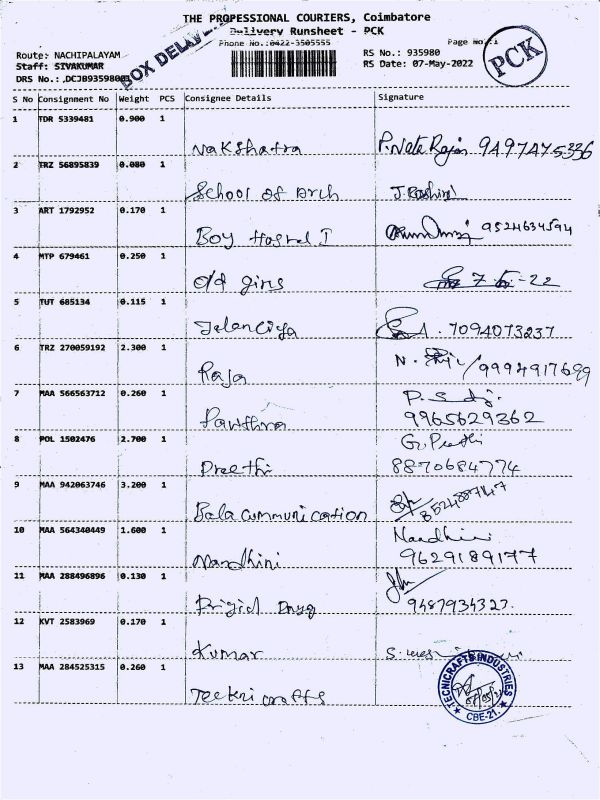 THE PROFESSIONAL COURIERS, Coimbatore
Delivery Runsheet - PCK
Phone No.:0422-3505555
Page No.:1
BOX DELIVERY
PCK
Route: NACHIPALAYAM
RS No.: 935980
Staff: SIVAKUMAR
RS Date: 07-May-2022
DRS No.:
S No Consignment No Weight PCS Consignee Details Signature
1 TDR 5339481 0.900 1
Nakshatra P. Nata Rajan 9497475336
2 TRZ 56895839 0.080 1
School of Arch J. Roshini
3 ART 1792952 0.170 1
Boy Hostel I 9524634594
4 MTP 679461 0.250 1
Old girls 22
5 TUT 685134 0.115 1
Jelenciya 7094073237
6 TRZ 270059192 2.300 1
Raja N. 9994917699
7 MAA 566563712 0.260 1
Pavithra P. 9965629362
8 POL 1502476 2.700 1
Preethi G. Preethi
8870684774
9 MAA 942063746 3.200 1
Bala Cummunication
10 MAA 564340449 1.600 1
Nandhini Nandhini
9629189177
11 MAA 288496896 0.130 1
9487934327.
12 KVT 2583969 0.170 1
Kumar S.
13 MAA 284525315 0.260 1
Teckni crafts
TECNICRAFTS INDUSTRIES
CBE-21.